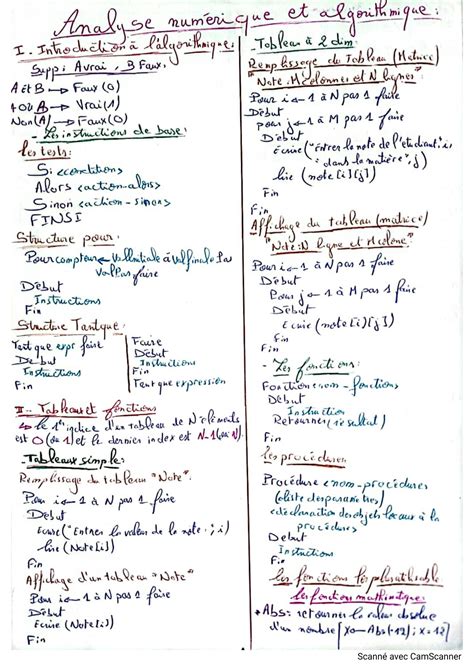 Analyse numérique et algorithmique:
I.- Introduction à l'algorithmique:
Supp: A vrai, B Faux.
A et B → Faux (0)
A → Vrai (1)
Non (A) → Faux (0)
- Les instructions de base:
Les tests:
Si <condition>
Alors <action-alors>
Sinon <action-sinon>
FINSI
Structure pour:
Pour compteur ← Val Initiale à Val finale
Val Pas faire
Début
Instructions
Fin
Structure Tantque:
Tant que expr faire
Début
Instructions
Fin
Faire
Début
Instructions
Fin
Tant que expression
II.- Tableaux et fonctions
↳ le 1er indice d'un tableau de N éléments
est 0 (ou 1) et le dernier index est N-1 (ou N).
- Tableaux simple:
Remplissage du tableau "Note"
Pour i ← 1 à N pas 1 faire
Début
Ecrire ("Entrer la valeur de la note", i)
lire (Note[i])
Fin
Affichage d'un tableau "Note"
Pour i ← 1 à N pas 1 faire
Début
Ecrire (Note[i])
Fin
- Tableau à 2 dim:
Remplissage du Tableau (Matrice)
"Note: M colonnes et N lignes"
Pour i ← 1 à N pas 1 faire
Début
pour j ← 1 à M pas 1 faire
Début
Ecrire ("Entrer la note de l'étudiant", i,
"dans la matière", j)
lire (note[i][j])
Fin
Fin
Affichage du tableau (matrice)
"Note: N ligne et M colone"
Pour i ← 1 à N pas 1 faire
Début
Pour j ← 1 à M pas 1 faire
Début
Ecrire (note[i][j])
Fin
Fin
- Les fonctions:
Fonction <nom-fonction>
Début
Instruction
Retourner (resultat)
Fin
les procédures
Procédure <nom-procédures>
(<liste des paramètres>)
<déclaration des objets locaux à la
procédure>
Debut
Instructions
Fin
les fonctions mathématique:
* Abs: retourner la valeur absolue
d'un nombre [X ← Abs(-12); X=12]
Scanné avec CamScanner